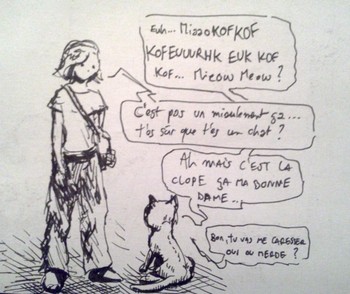 Euh... MizzoKOFKOF
KOFEUUURHK EUK KOF
KOF... Mieow Meow ?
C'est pas un miaulement ça...
t'es sûr que t'es un chat ?
Ah mais C'EST LA
CLOPE ÇA MA BONNE
DAME...
Bon, tu vas me caresser
oui ou merde ?